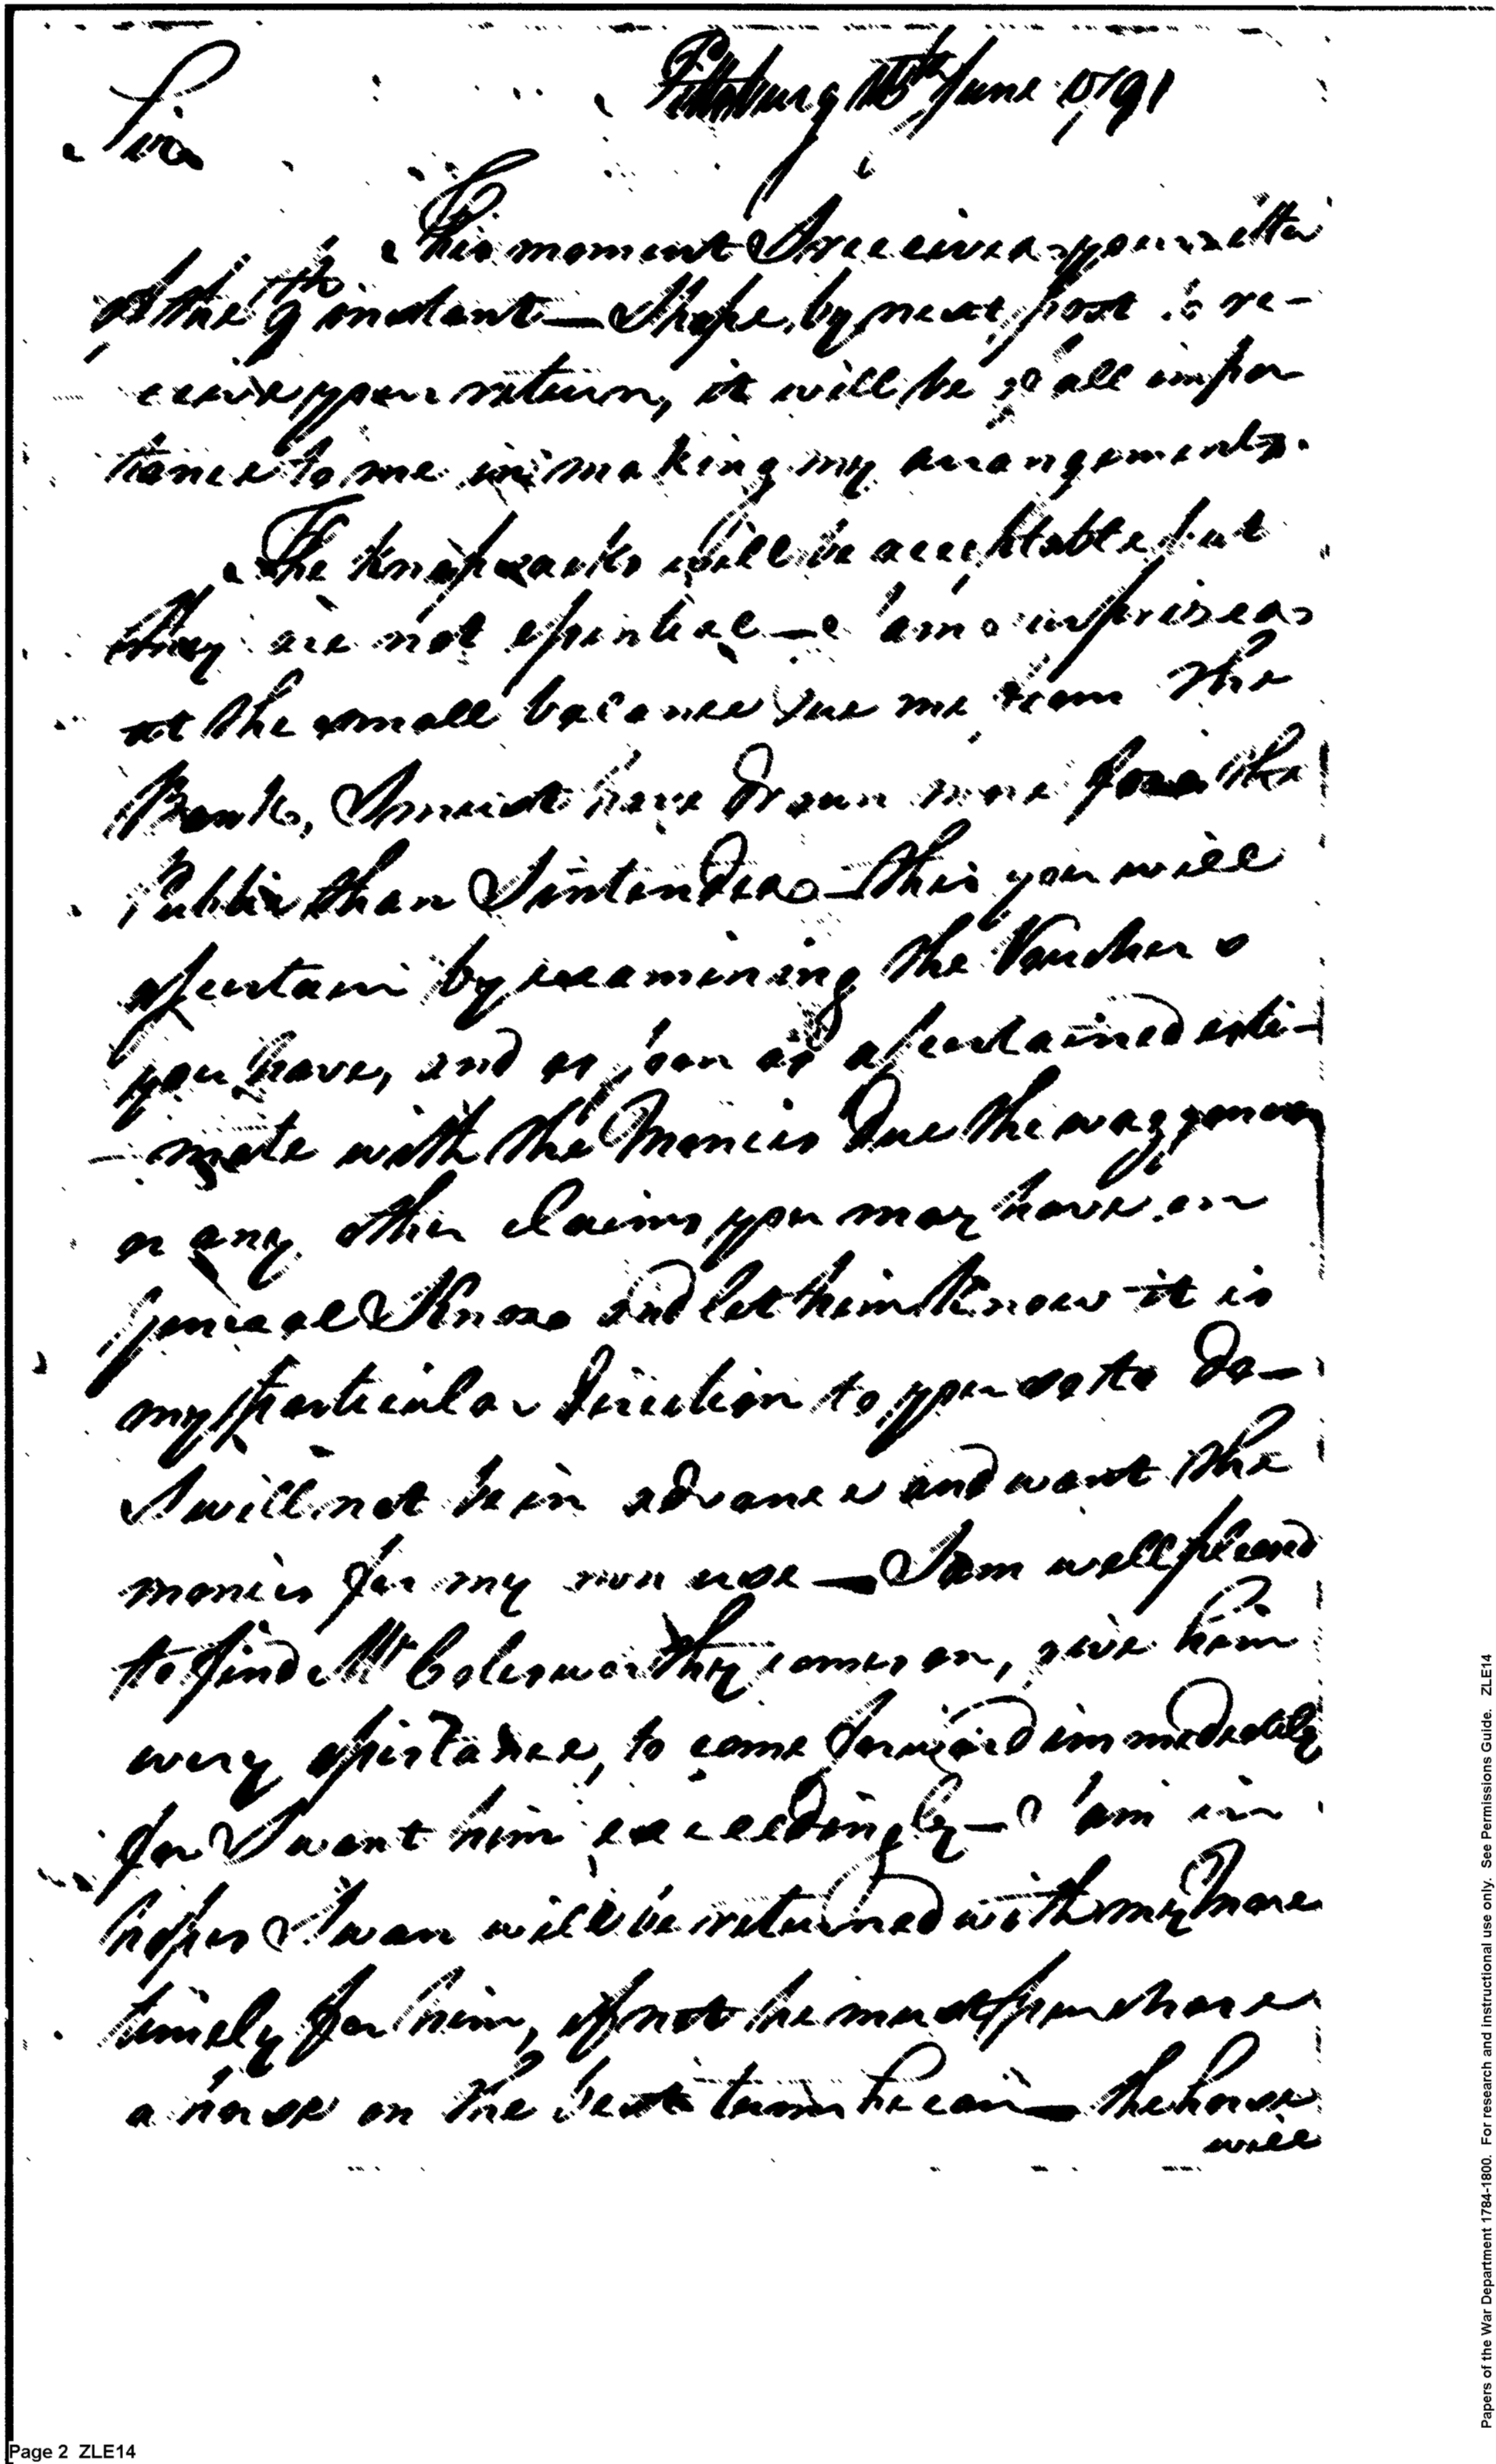 Pittsburg 16th June 1791
Sir
This moment I received your letter
of the 9th instant — I hope, by next post to re-
ceive your return, it will be of all impor
tance to me in making my arrangements.
The knapsacks will be acceptable but
they are not essential — I am surprised
at the small balance due me from the
Bank, I must have drawn more for the
Public than I intended — this you will
ascertain by examining the Vouchers
you have, and as soon as ascertained esti-
-mate with the Monies due the waggoner
or any other claims you may have on
General Knox and let him know it is
my particular direction to you so to do —
I will not be in advance and want the
monies for my own use — I am well pleased
to find Mr Colesworthy comes on, give him
every assistance, to come forward immediately
for I want him exceedingly — I am in
hopes Swan will be returned with my Mare
timely for him, if not he must purchase
a horse on the best terms he can — the horse
will
Page 2 ZLE14
Papers of the War Department 1784-1800. For research and instructional use only. See Permissions Guide. ZLE14